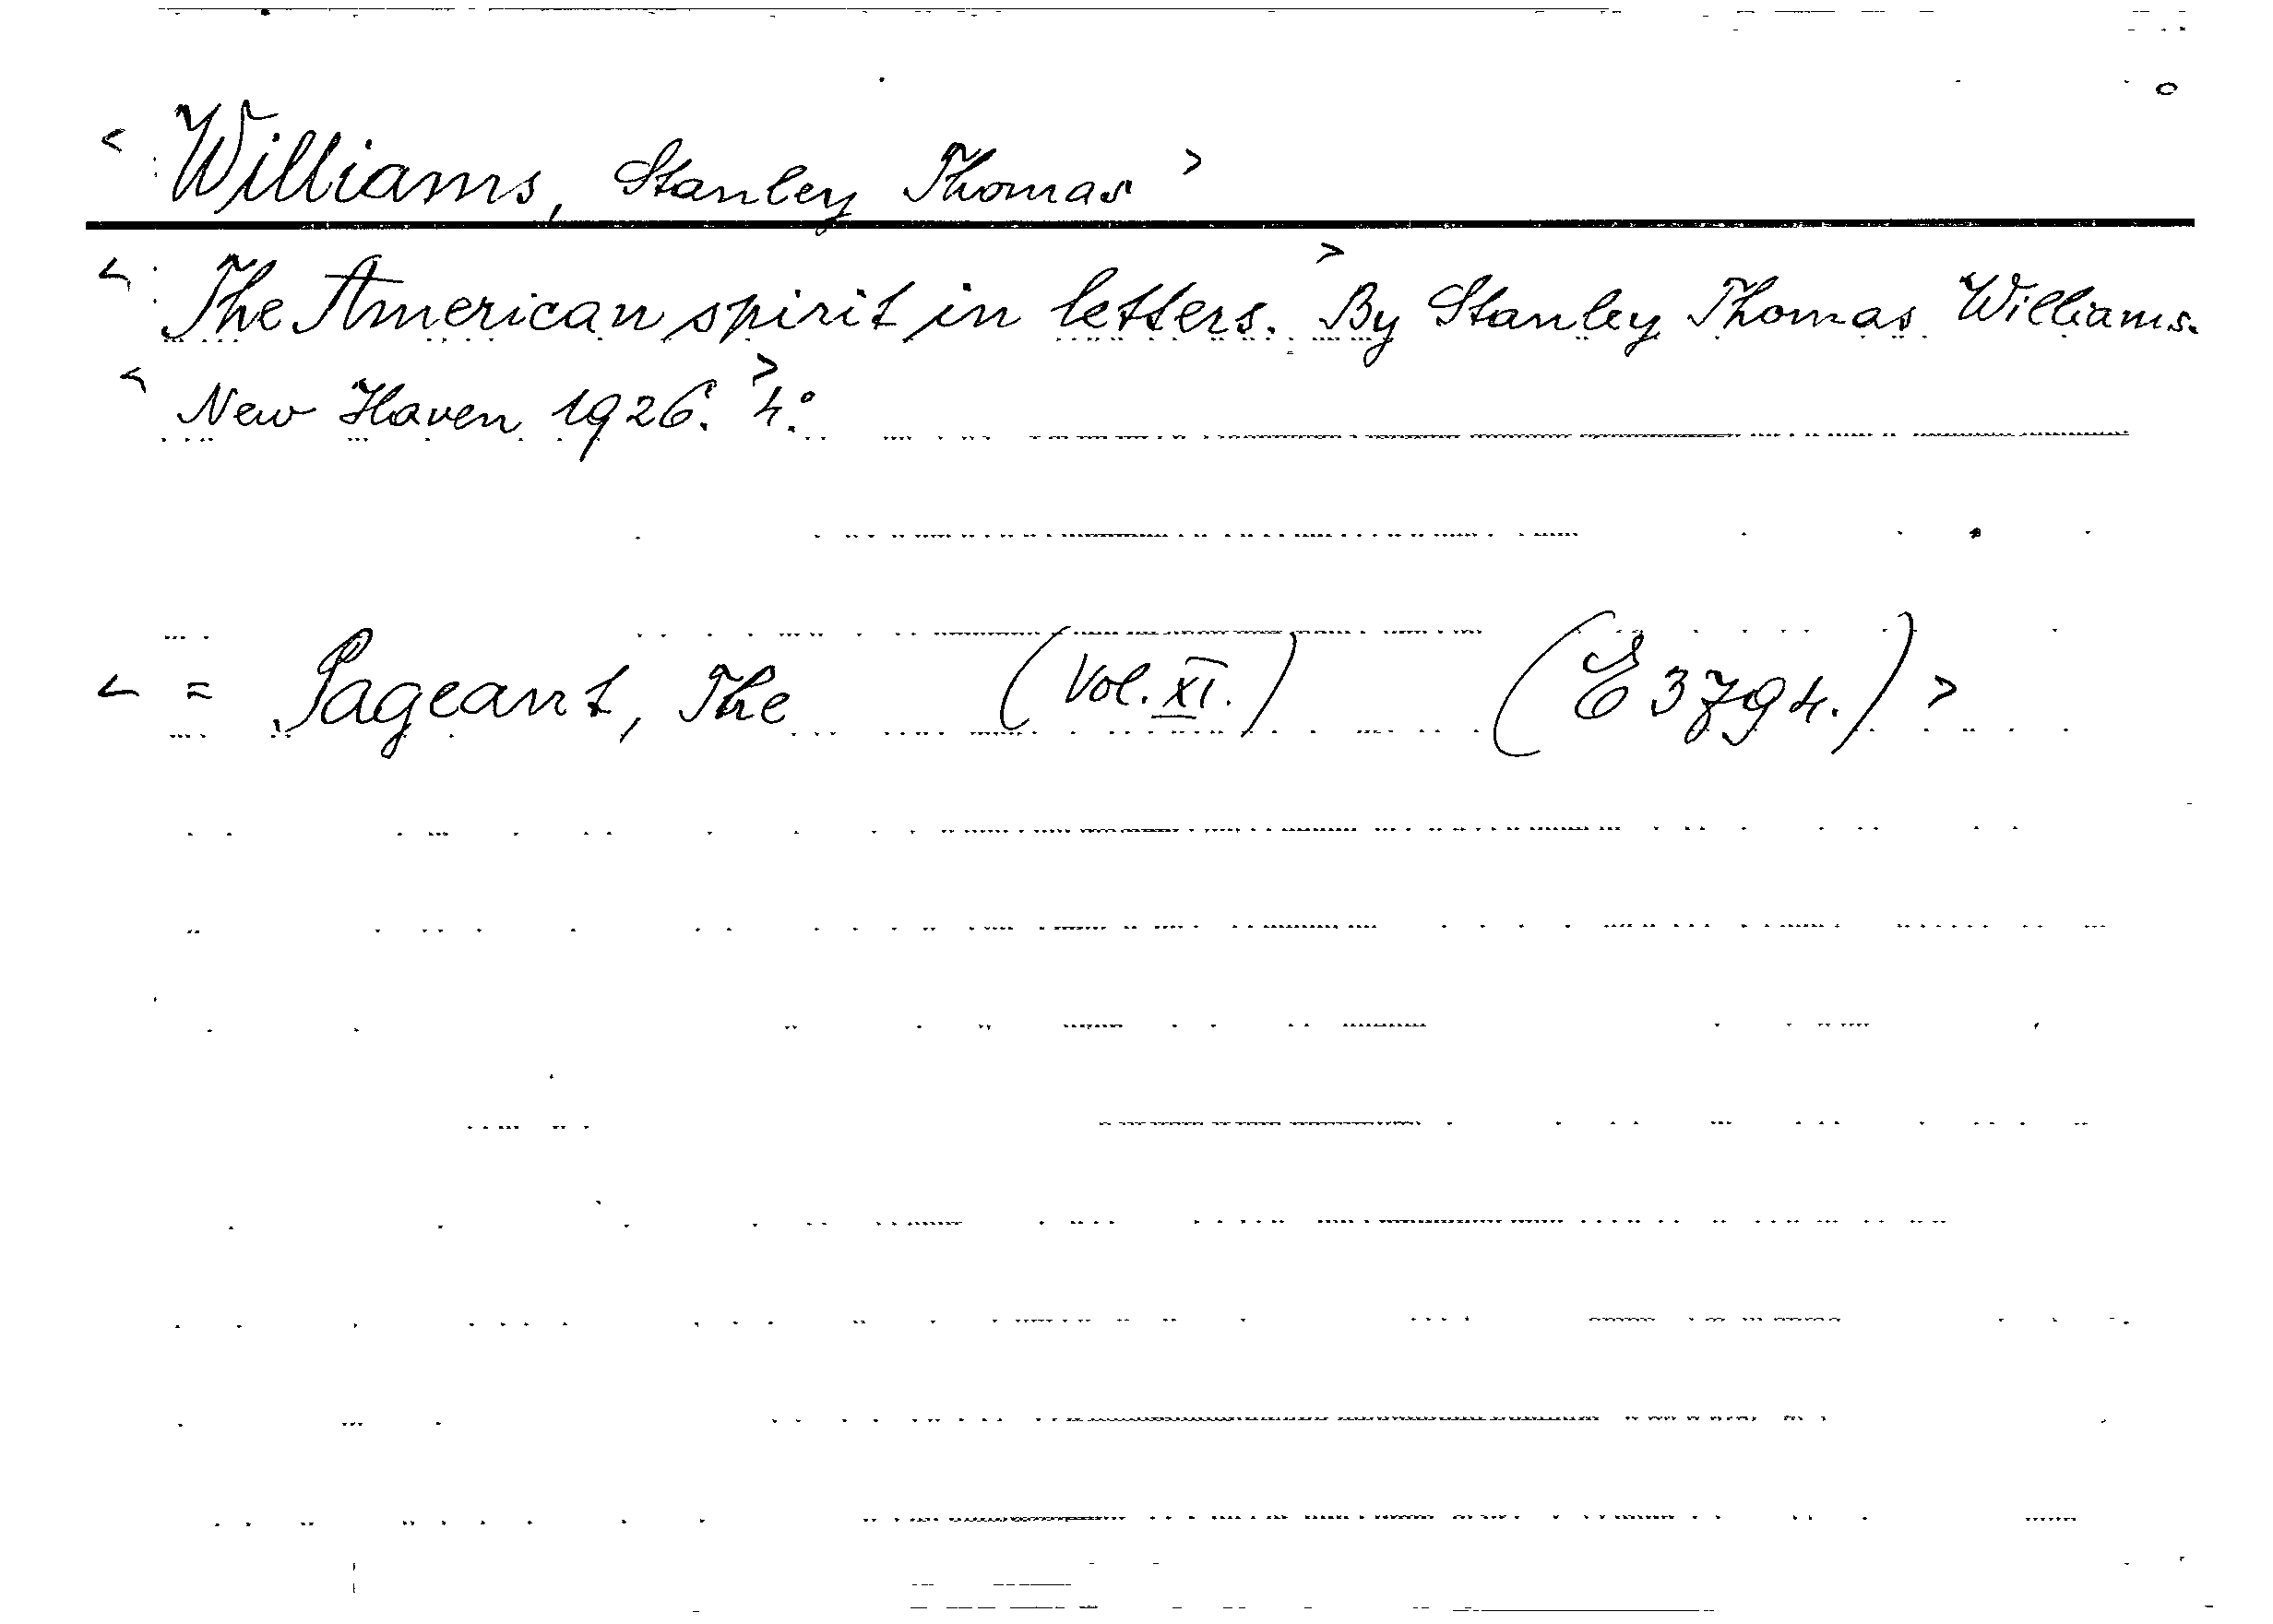 < Williams, Stanley Thomas >
< The American spirit in letters. > By Stanley Thomas Williams.
< New Haven 1926. > 4°.
< = Pageant, The (Vol. XI.) (E 3794.) >